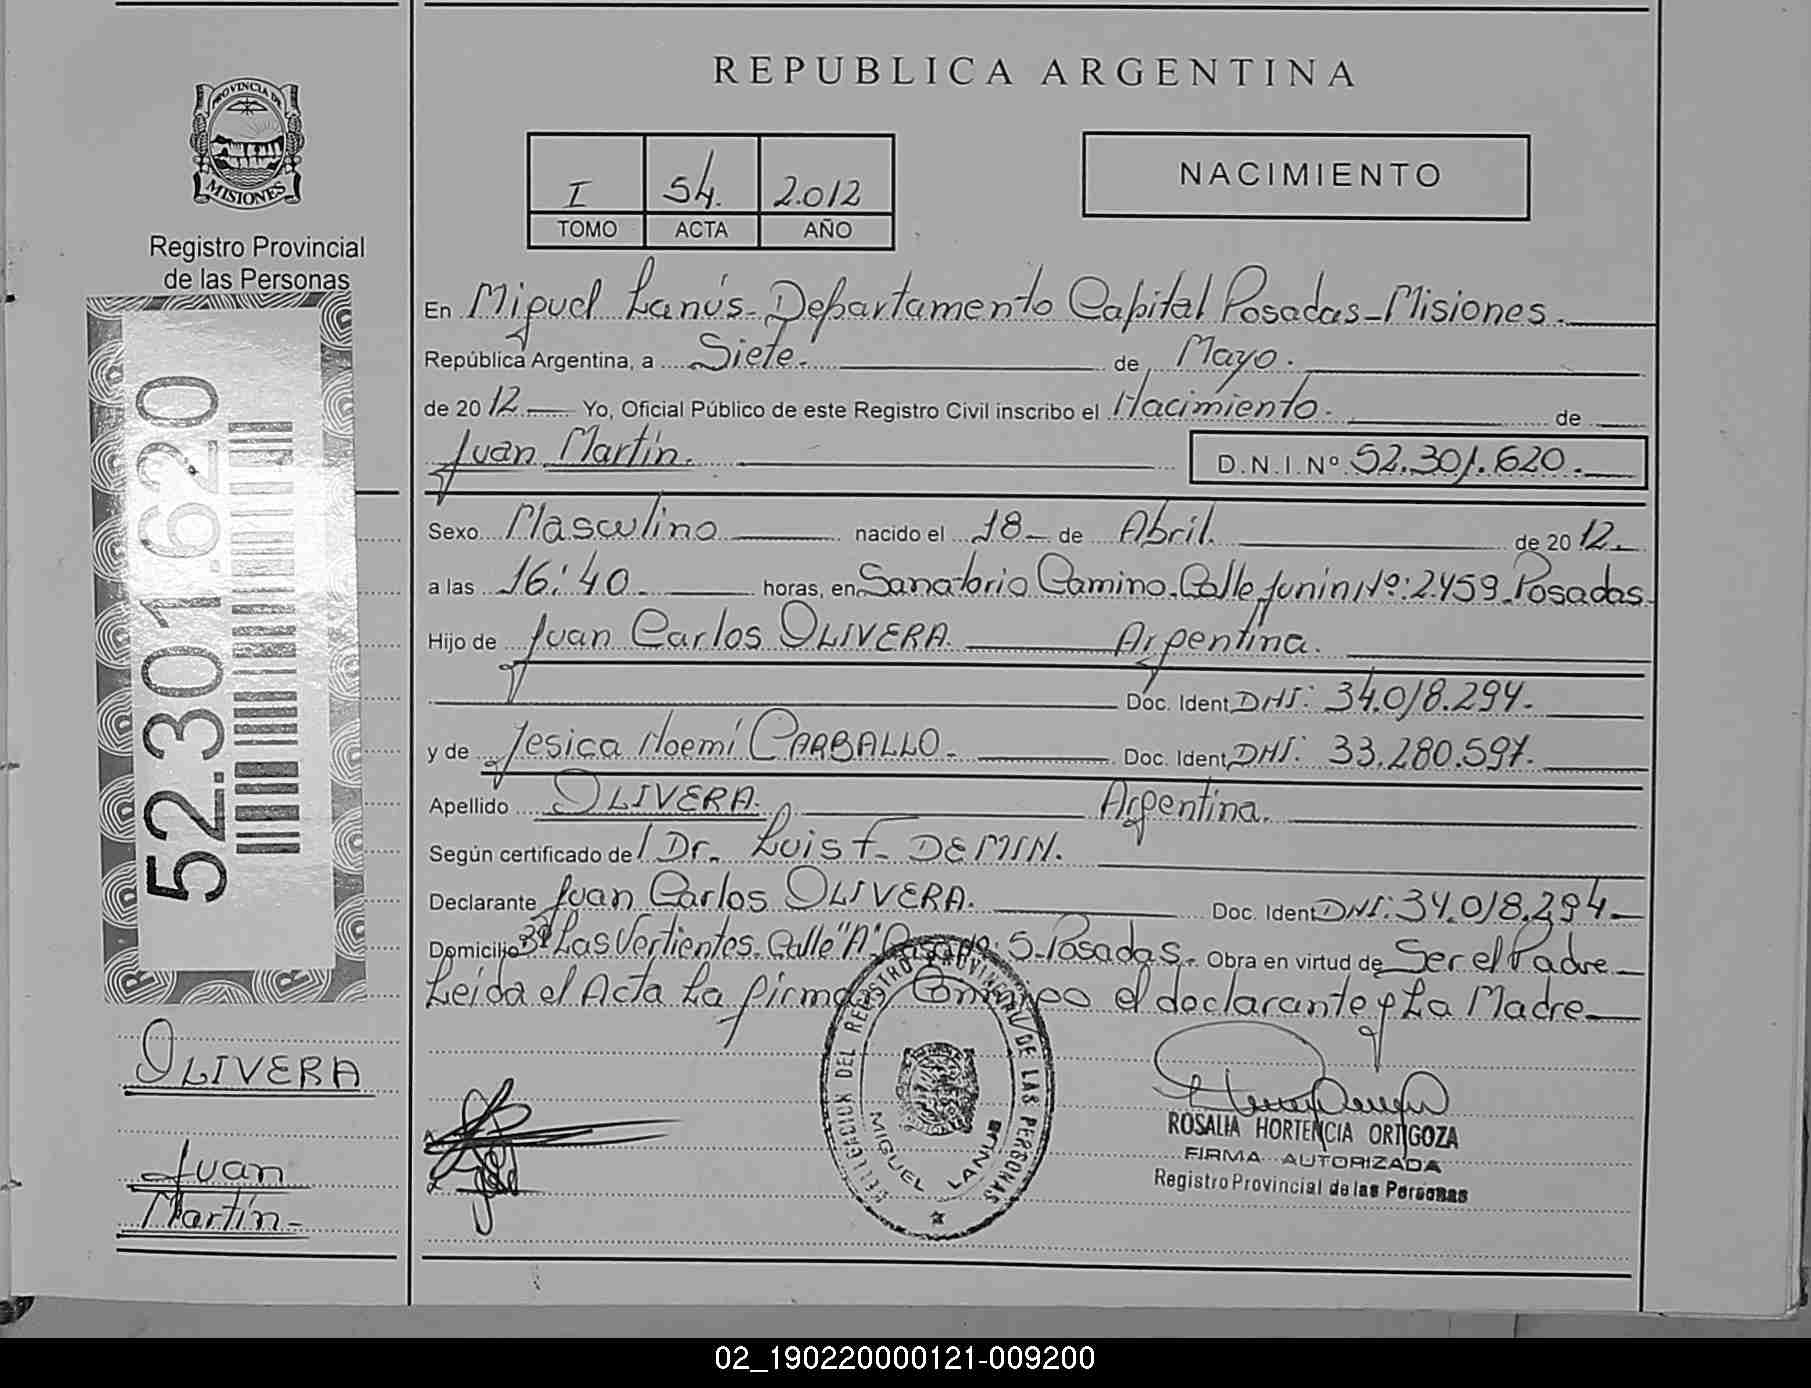 REPUBLICA ARGENTINA
PROVINCIA DE
MISIONES
Registro Provincial
de las Personas
52.301.620
OLIVERA
Juan
Martín-
I 54. 2.012
TOMO ACTA AÑO
NACIMIENTO
En Miguel Lanús- Departamento Capital Posadas-Misiones.
República Argentina, a Siete. de Mayo.
de 2012 Yo, Oficial Público de este Registro Civil inscribo el Nacimiento. de
Juan Martín. D.N.I.Nº 52.301.620.
Sexo Masculino nacido el 18 de Abril. de 2012.
a las 16:40 horas, en Sanatorio Camino. Calle Junín Nº: 2459 Posadas.
Hijo de Juan Carlos OLIVERA. Argentina.
Doc. Ident DNI: 34.018.294.
y de Jesica Noemí CARBALLO. Doc. Ident DNI: 33.280.597.
Apellido OLIVERA. Argentina.
Según certificado del Dr. Luis F. DEMIN.
Declarante Juan Carlos OLIVERA. Doc. Ident DNI: 34.018.294
Domicilio Las Vertientes. Calle "A". Casa Nº: 5. Posadas. Obra en virtud de Ser el Padre
Leída el Acta La firman Conmigo el declarante y La Madre
DELEGACION DEL REGISTRO PROVINCIAL DE LAS PERSONAS
MIGUEL LANUS
ROSALIA HORTENCIA ORTIGOZA
FIRMA AUTORIZADA
Registro Provincial de las Personas
02_190220000121-009200